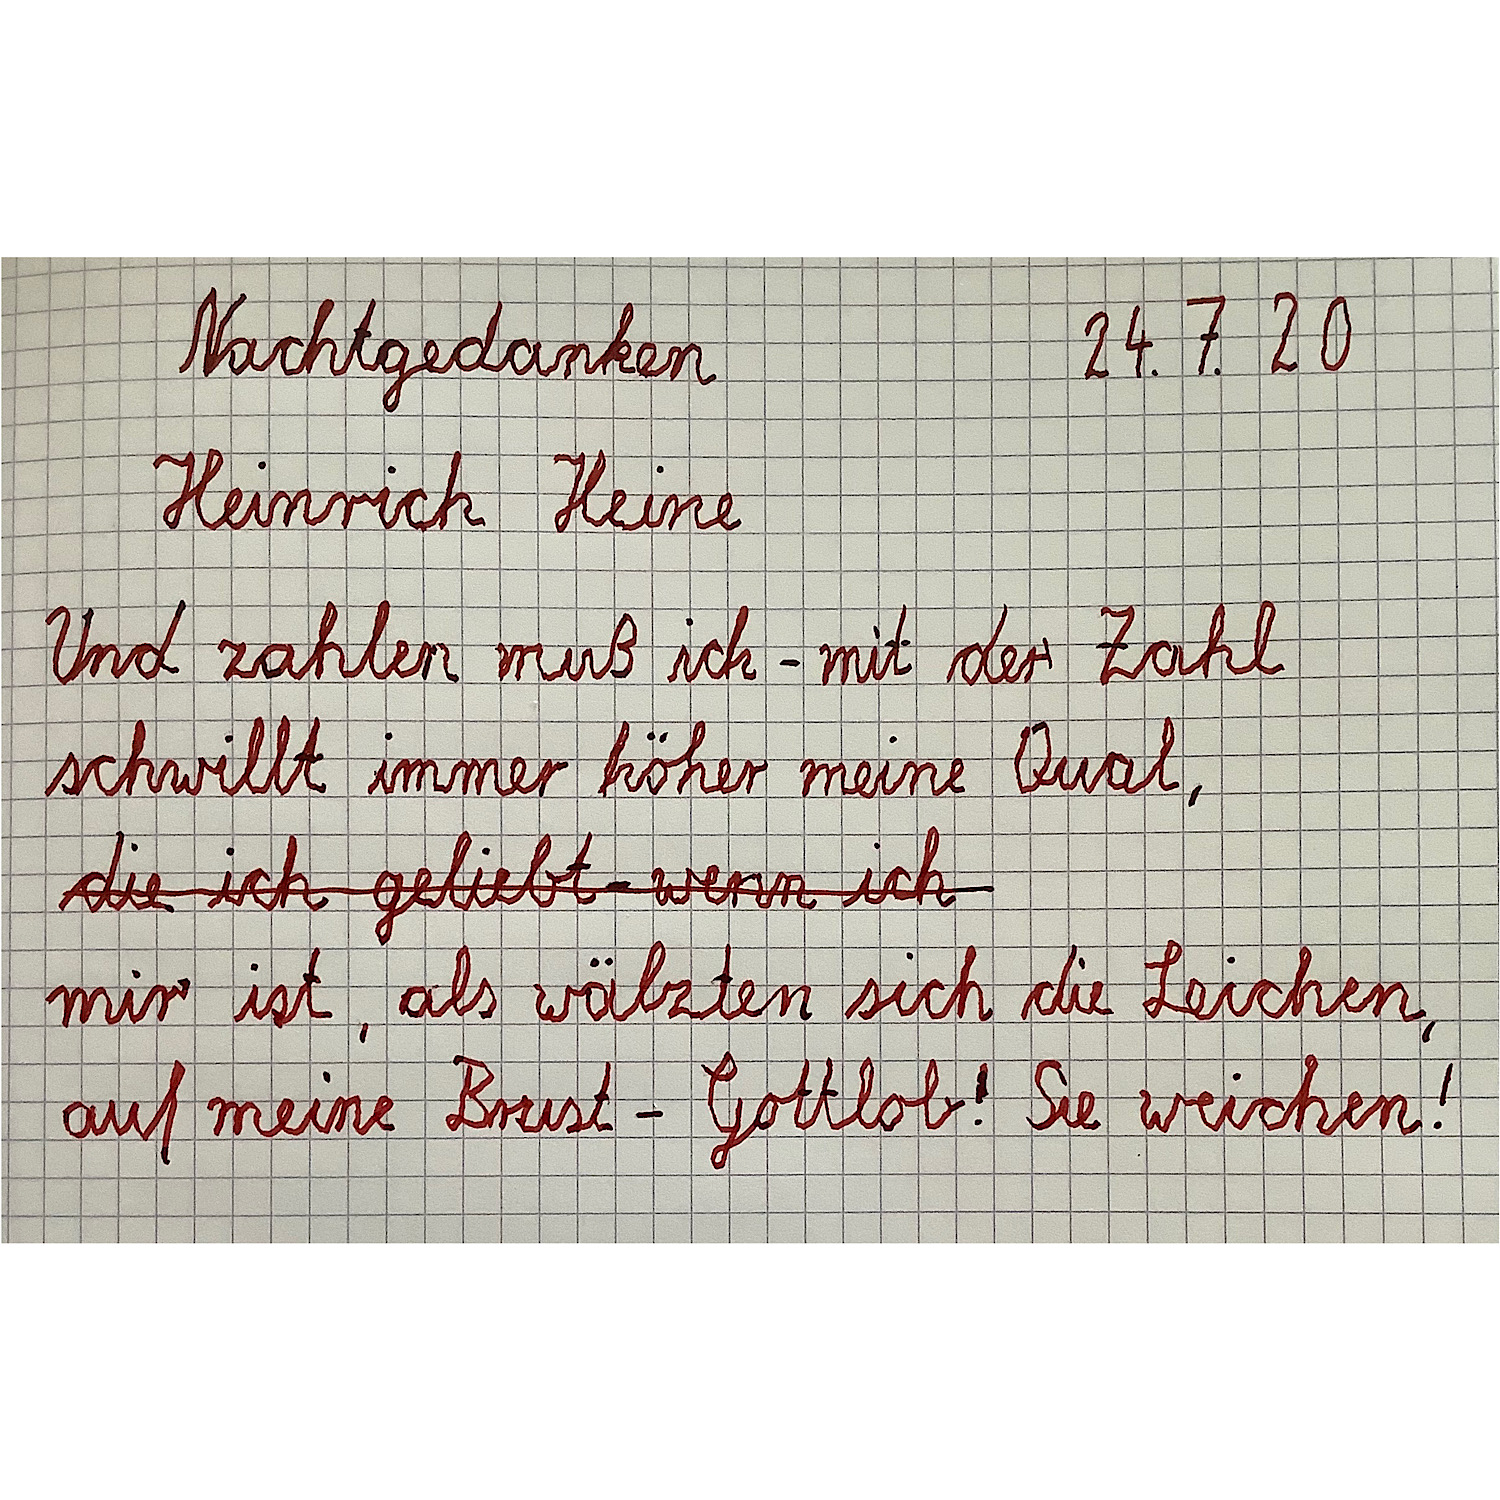 Nachtgedanken 24.7.20
Heinrich Heine
Und zahlen muß ich - mit der Zahl
schwillt immer höher meine Qual,
die ich geliebt - wenn ich
mir ist, als wälzten sich die Leichen,
auf meine Brust - Gottlob! Sie weichen!